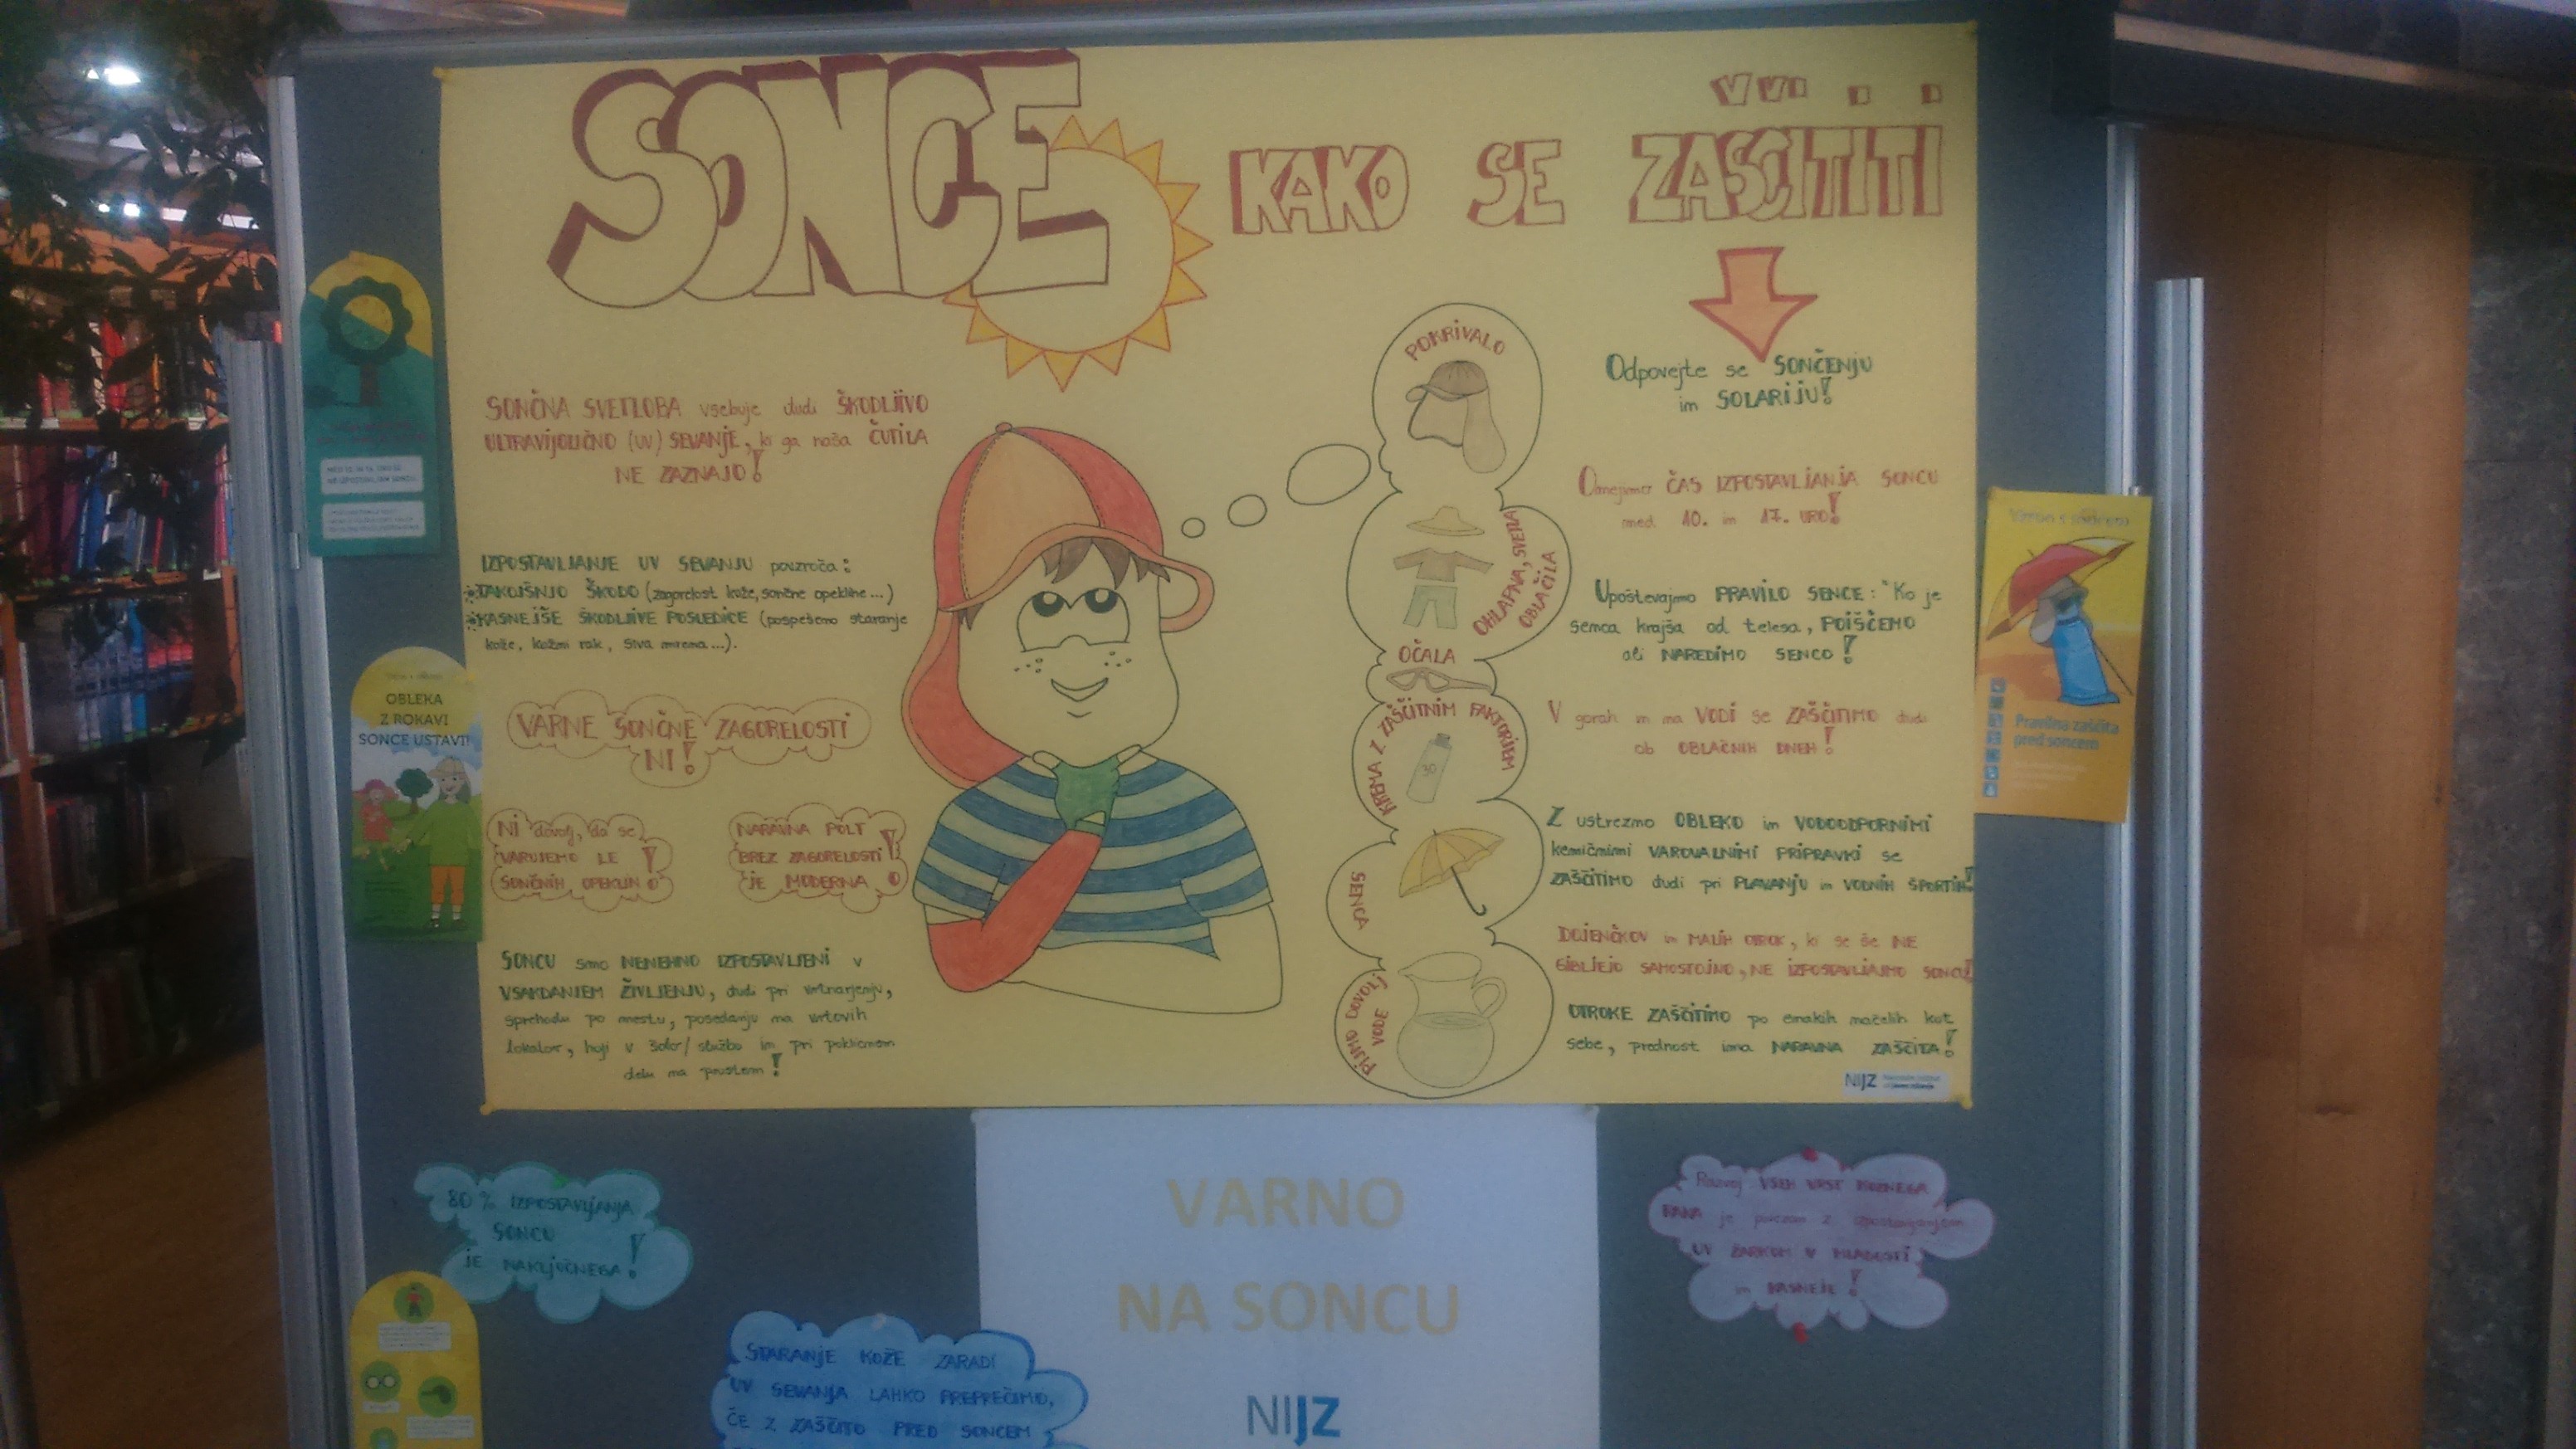 SONCE
KAKO SE ZAŠČITITI
SONČNA SVETLOBA vsebuje tudi ŠKODLJIVO
ULTRAVIJOLIČNO (UV) SEVANJE, ki ga naša ČUTILA
NE ZAZNAJO!
IZPOSTAVLJANJE UV SEVANJU povzroča:
TAKOJŠNJO ŠKODO (zagorelost kože, sončne opekline...)
KASNEJŠE ŠKODLJIVE POSLEDICE (pospešeno staranje
kože, kožni rak, siva mrena...).
VARNE SONČNE ZAGORELOSTI
NI!
NI dovolj, da se
VARUJEMO LE
SONČNIH OPEKLIN!
NARAVNA POLT
BREZ ZAGORELOSTI
JE MODERNA!
SONCU smo NENEHNO IZPOSTAVLJENI v
VSAKDANJEM ŽIVLJENJU, tudi pri vrtnarjenju,
sprehodu po mestu, posedanju na vrtovih
lokalov, hoji v šolo/službo in pri poklicnem
delu na prostem!
POKRIVALO
OHLAPNA, SVETLA
OBLAČILA
OČALA
KREMA Z ZAŠČITNIM FAKTORJEM
30
SENCA
PIJMO DOVOLJ
VODE
Odpovejte se SONČENJU
in SOLARIJU!
Omejimo ČAS IZPOSTAVLJANJA SONCU
med 10. in 17. URO!
Upoštevajmo PRAVILO SENCE: "Ko je
senca krajša od telesa, POIŠČEMO
ali NAREDIMO SENCO!
V gorah in na VODI se ZAŠČITIMO tudi
ob OBLAČNIH DNEH!
Z ustrezno OBLEKO in VODOODPORNIMI
kemičnimi VAROVALNIMI PRIPRAVKI se
ZAŠČITIMO tudi pri PLAVANJU in VODNIH ŠPORTIH!
DOJENČKOV in MALIH OTROK, ki se še NE
GIBLJEJO SAMOSTOJNO, NE IZPOSTAVLJAJMO SONCU!
OTROKE ZAŠČITIMO po enakih načelih kot
sebe, prednost ima NARAVNA ZAŠČITA!
NIJZ
OBLEKA
Z ROKAVI
SONCE USTAVI!
Varno s soncem
Pravilna zaščita
pred soncem
80% IZPOSTAVLJANJA
SONCU
JE NAKLJUČNEGA!
STARANJE KOŽE ZARADI
UV SEVANJA LAHKO PREPREČIMO,
ČE Z ZAŠČITO PRED SONCEM
VARNO
NA SONCU
NIJZ
Razvoj VSEH VRST KOŽNEGA
RAKA je povezan z izpostavljanjem
UV ŽARKOM V MLADOSTI
in KASNEJE!